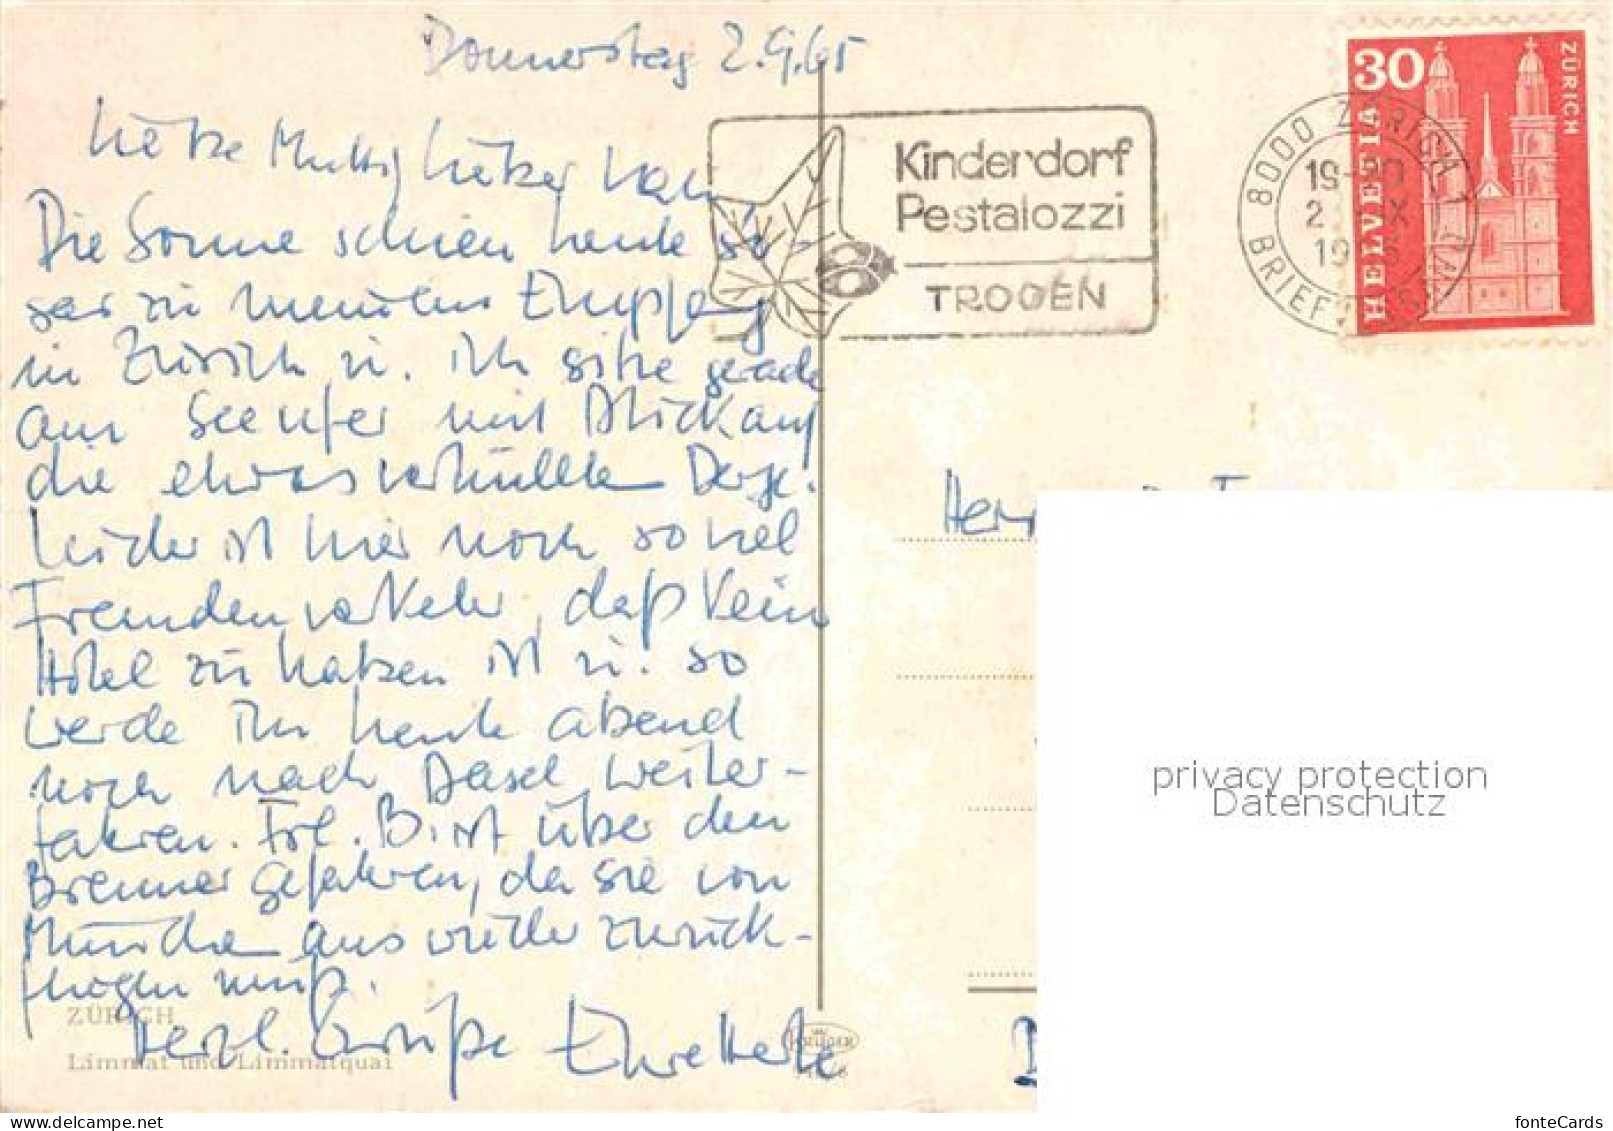 Donnerstag 2.9.65
Liebe Mutti, lieber Vati,
Die Sonne schien heute so-
gar zu meinem Empfang
in Zürich u. ich sitze gerade
am Seeufer mit Blick auf
die etwas verhüllten Berge.
Leider ist hier noch so viel
Fremdenverkehr, daß kein
Hotel zu haben ist u. so
werde ich heute abend
noch nach Basel weiter-
fahren. Frl. B. ist über den
Brenner gefahren, da sie von
München aus wieder zurück-
fliegen muß.
Herzl. Grüße Eure
ZÜRICH
Limmat und Limmatquai
KRÜGER
Kinderdorf
Pestalozzi
TROGEN
8000 ZÜRICH 1
BRIEFVERSAND
2. IX.
30
HELVETIA
ZÜRICH
Herrn
privacy protection
Datenschutz
fonteCards